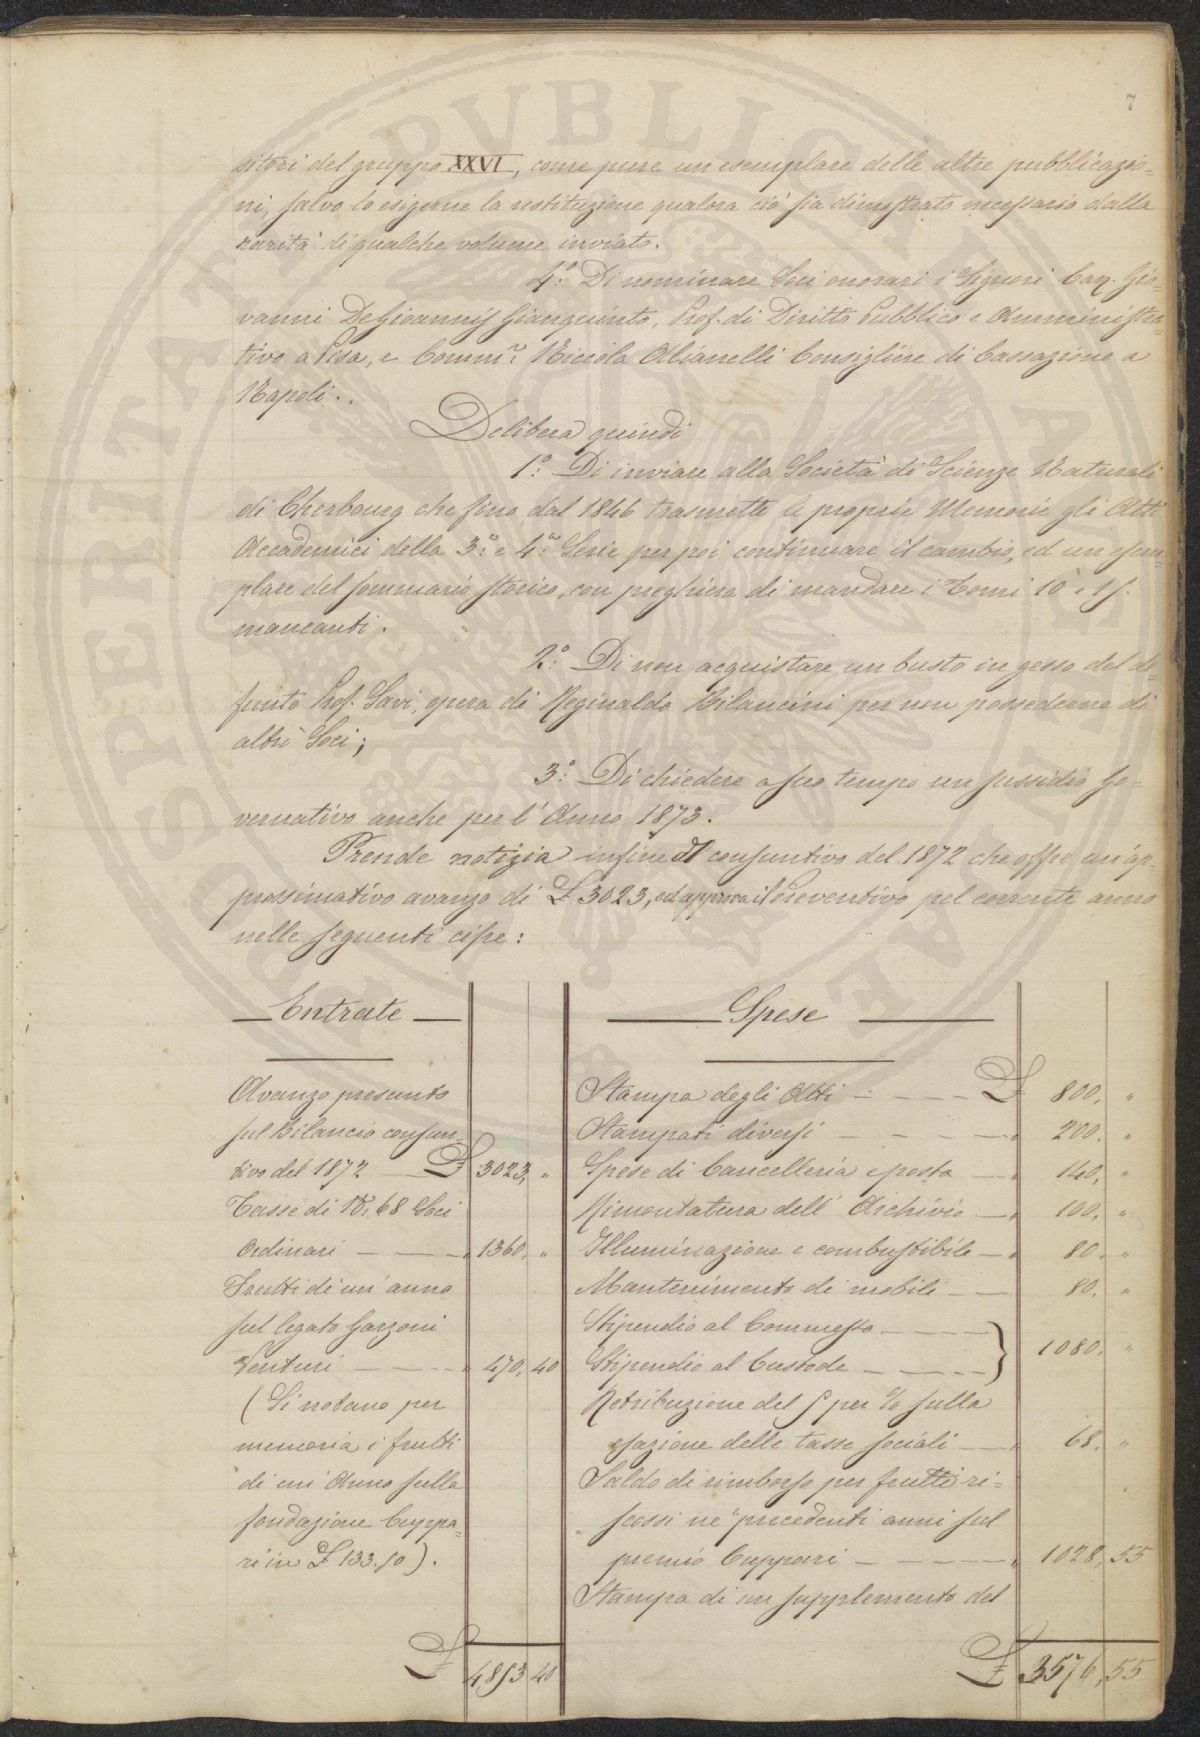 7
sitori del gruppo XXVI, come pure un esemplare delle altre pubblicazio-
ni, salvo lo esigerne la restituzione qualora ciò sia dimostrato necessario dalla
rarità di qualche volume inviato.
4.° Di nominare Soci onorari i Signori Cav. Gio-
vanni DeGioannis Gianquinto, Prof. di Diritto Pubblico e Amministra-
tivo a Pisa, e Comm.r Niccola Alianelli Consigliere di Cassazione a
Napoli.
Delibera quindi
1.° Di inviare alla Società di Scienze Naturali
di Cherbourg che fino dal 1846 trasmette le proprie Memorie gli Atti
Accademici della 3.a e 4.a Serie per poi continuare il cambio, ed un esem-
plare del sommario storico, con preghiera di mandare i Tomi 10 e 15.
mancanti.
2.° Di non acquistare un busto in gesso del de-
funto Prof. Savi, opera di Reginaldo Bilancini per non possederne di
altri Soci;
3.° Di chiedere a suo tempo un sussidio Go-
vernativo anche per l'Anno 1873.
Prende notizia infine del consuntivo del 1872 che offre un'ap-
prossimativo avanzo di £ 3023, ed approva il Preventivo pel corrente anno
nelle seguenti cifre:
Entrate
Avanzo presunto
sul Bilancio consun-
tivo del 1872 — £ 3023, "
Tasse di N.° 68 Soci
Ordinari — " 1360, "
Frutti di un'anno
sul legato Garzoni
Venturi — " 470, 40
(Si notano per
memoria i frutti
di un'Anno sulla
fondazione Cuppa-
ri in £ 133.50).
£ 4,853 40
Spese
Stampa degli Atti — £ 800, "
Stampati diversi — " 200. "
Spese di Cancelleria e posta — " 140, "
Rimontatura dell'Archivio — " 100, "
Illuminazione e combustibile — " 80. "
Mantenimento di mobili — 80. "
Stipendio al Commesso —
Stipendio al Custode — } 1080. "
Retribuzione del 5 per % sulla
esazione delle tasse sociali — " 68. "
Saldo di rimborso per frutti ri-
scossi ne' precedenti anni sul
premio Cuppari — " 1028, 55
Stampa di un supplemento del
£ 3576, 55